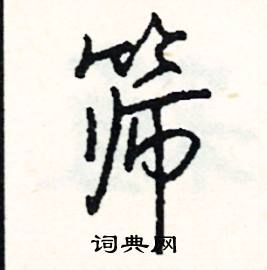 筛
词典网